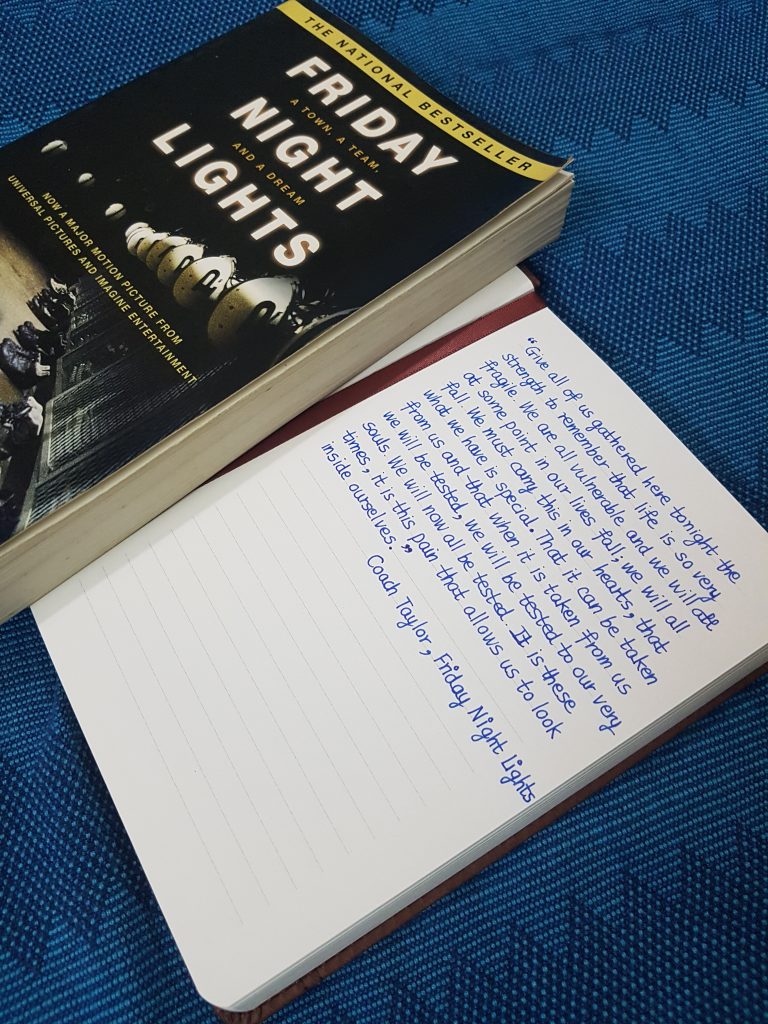 THE NATIONAL BESTSELLER
FRIDAY
A TOWN, A TEAM,
NIGHT
AND A DREAM
LIGHTS
NOW A MAJOR MOTION PICTURE FROM
UNIVERSAL PICTURES AND IMAGINE ENTERTAINMENT
"Give all of us gathered here tonight the
strength to remember that life is so very
fragile. We are all vulnerable and we will all
at some point in our lives fall; we will all
fall. We must carry this in our hearts, that
what we have is special. That it can be taken
from us and that when it is taken from us
we will be tested, we will be tested to our very
souls. We will now all be tested. It is these
times, it is this pain that allows us to look
inside ourselves."
Coach Taylor, Friday Night Lights